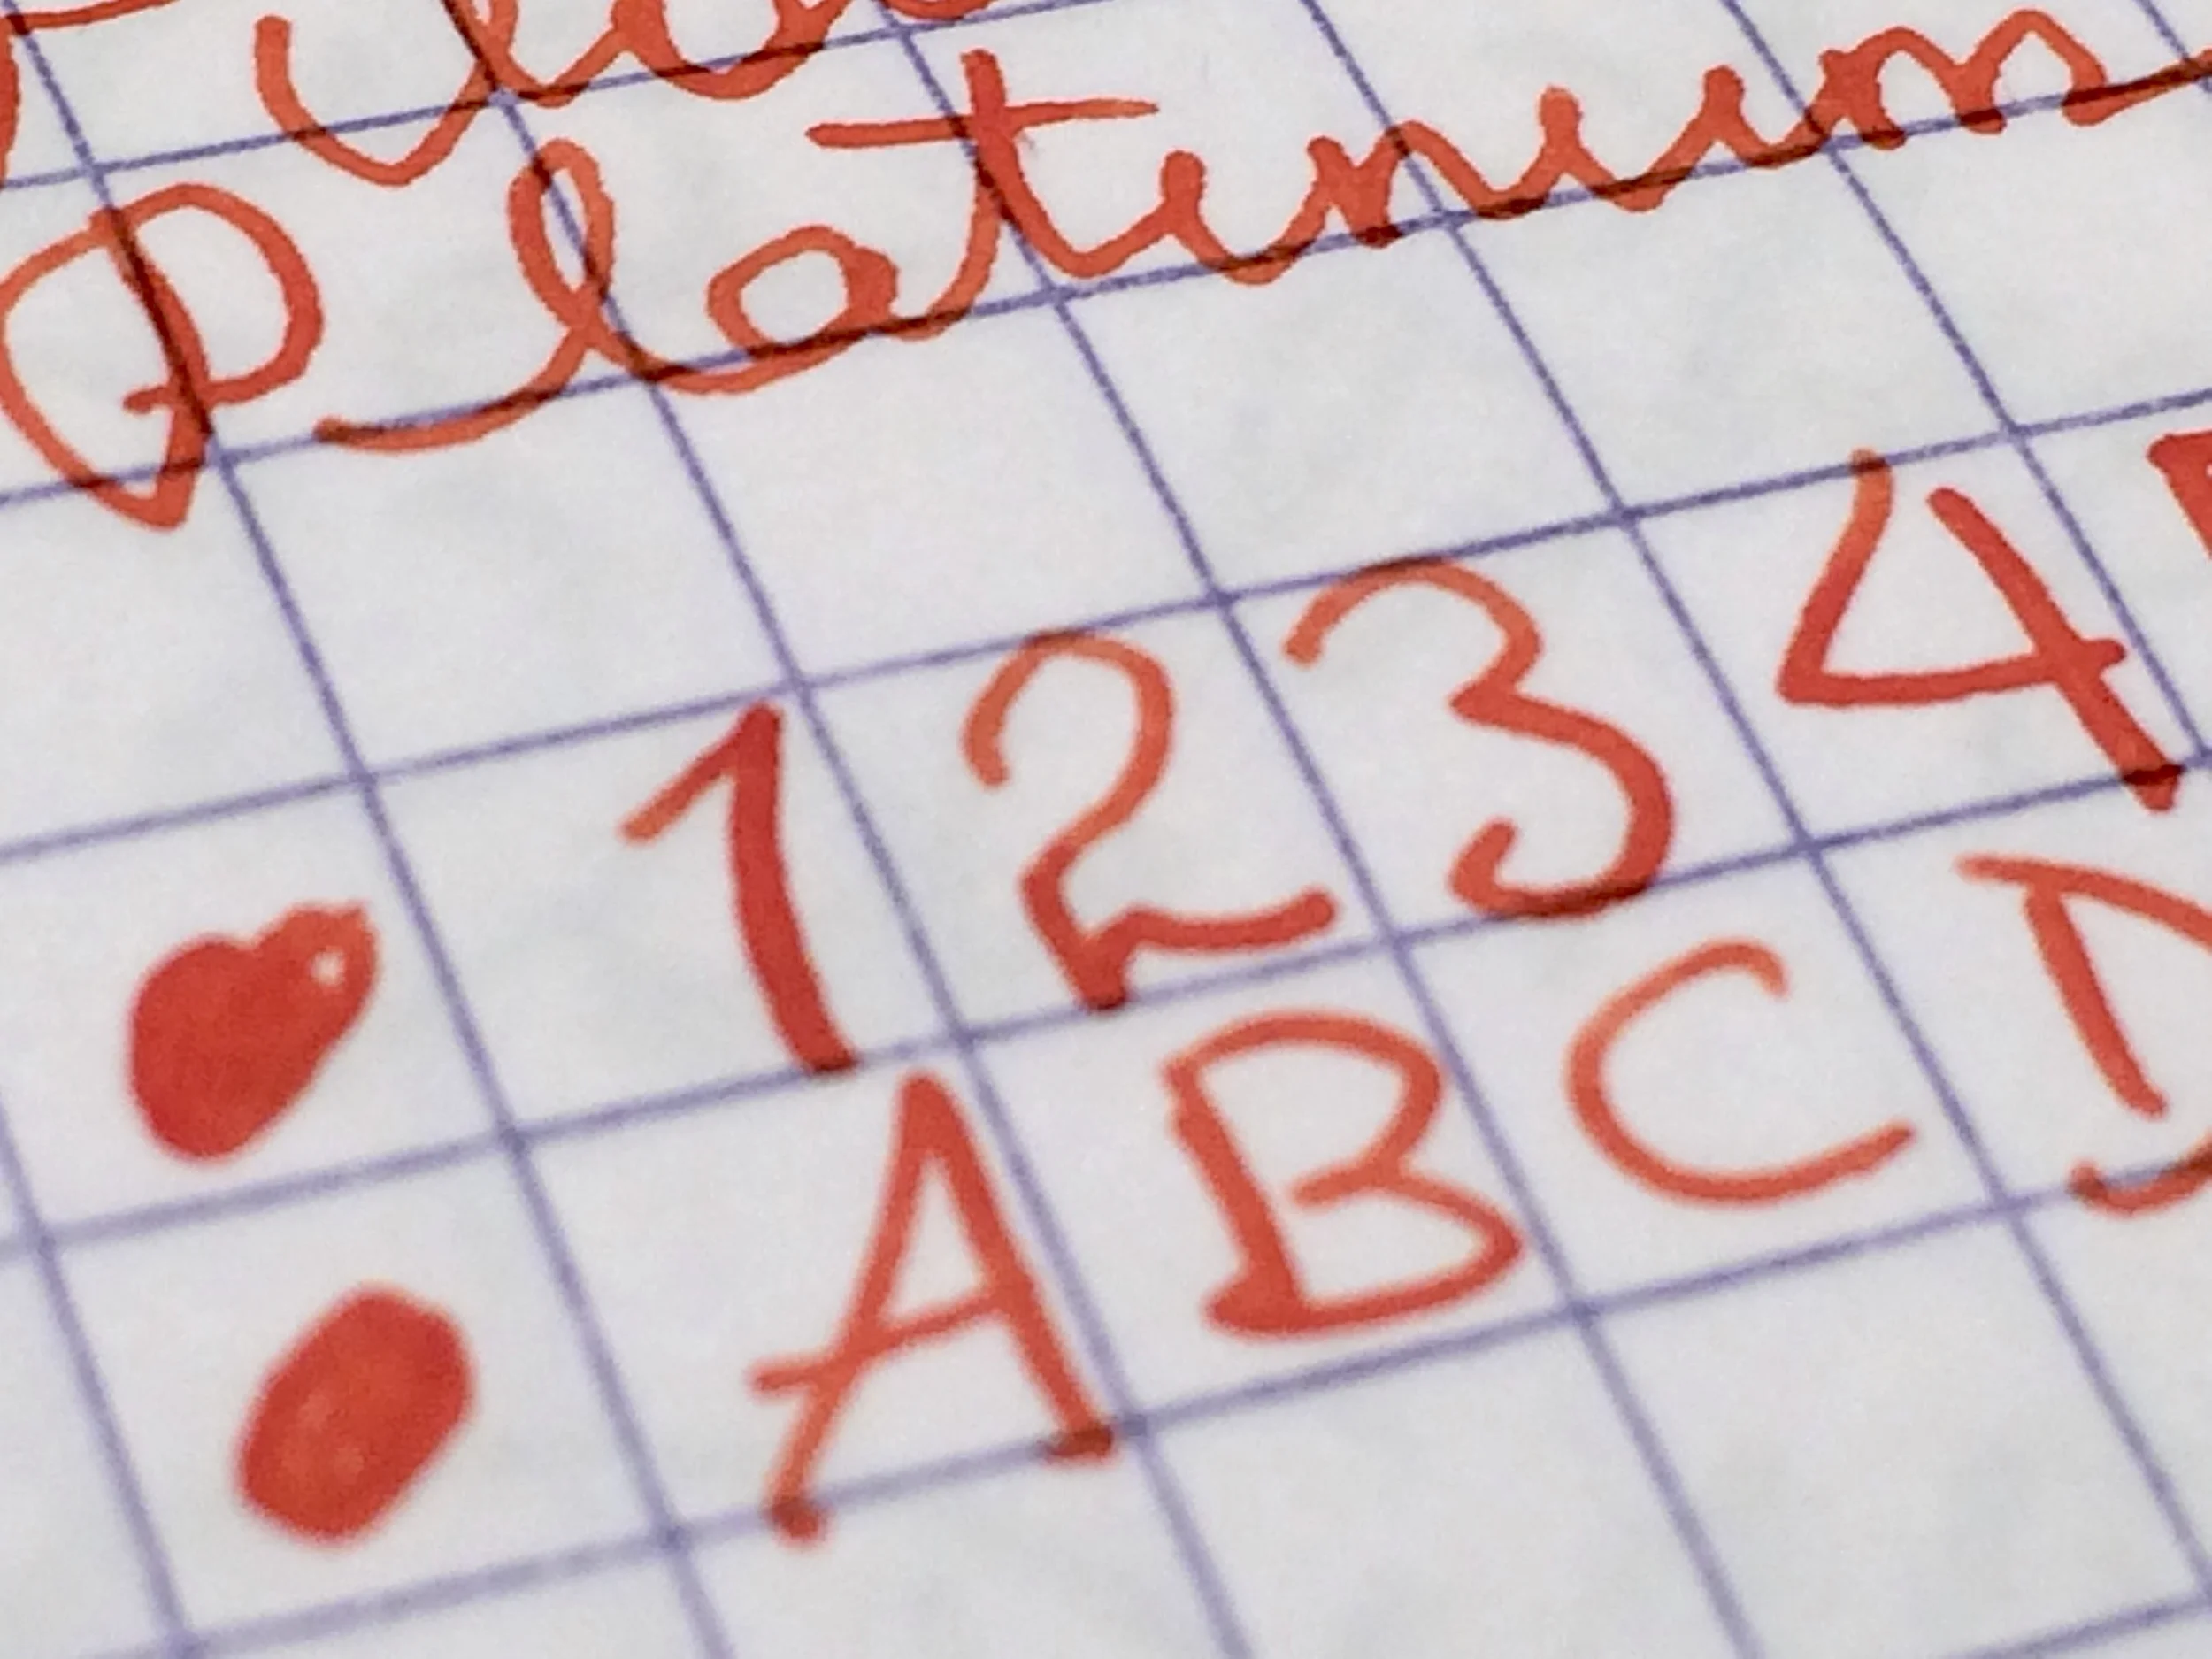 Platinum
1 2 3 4
A B C D